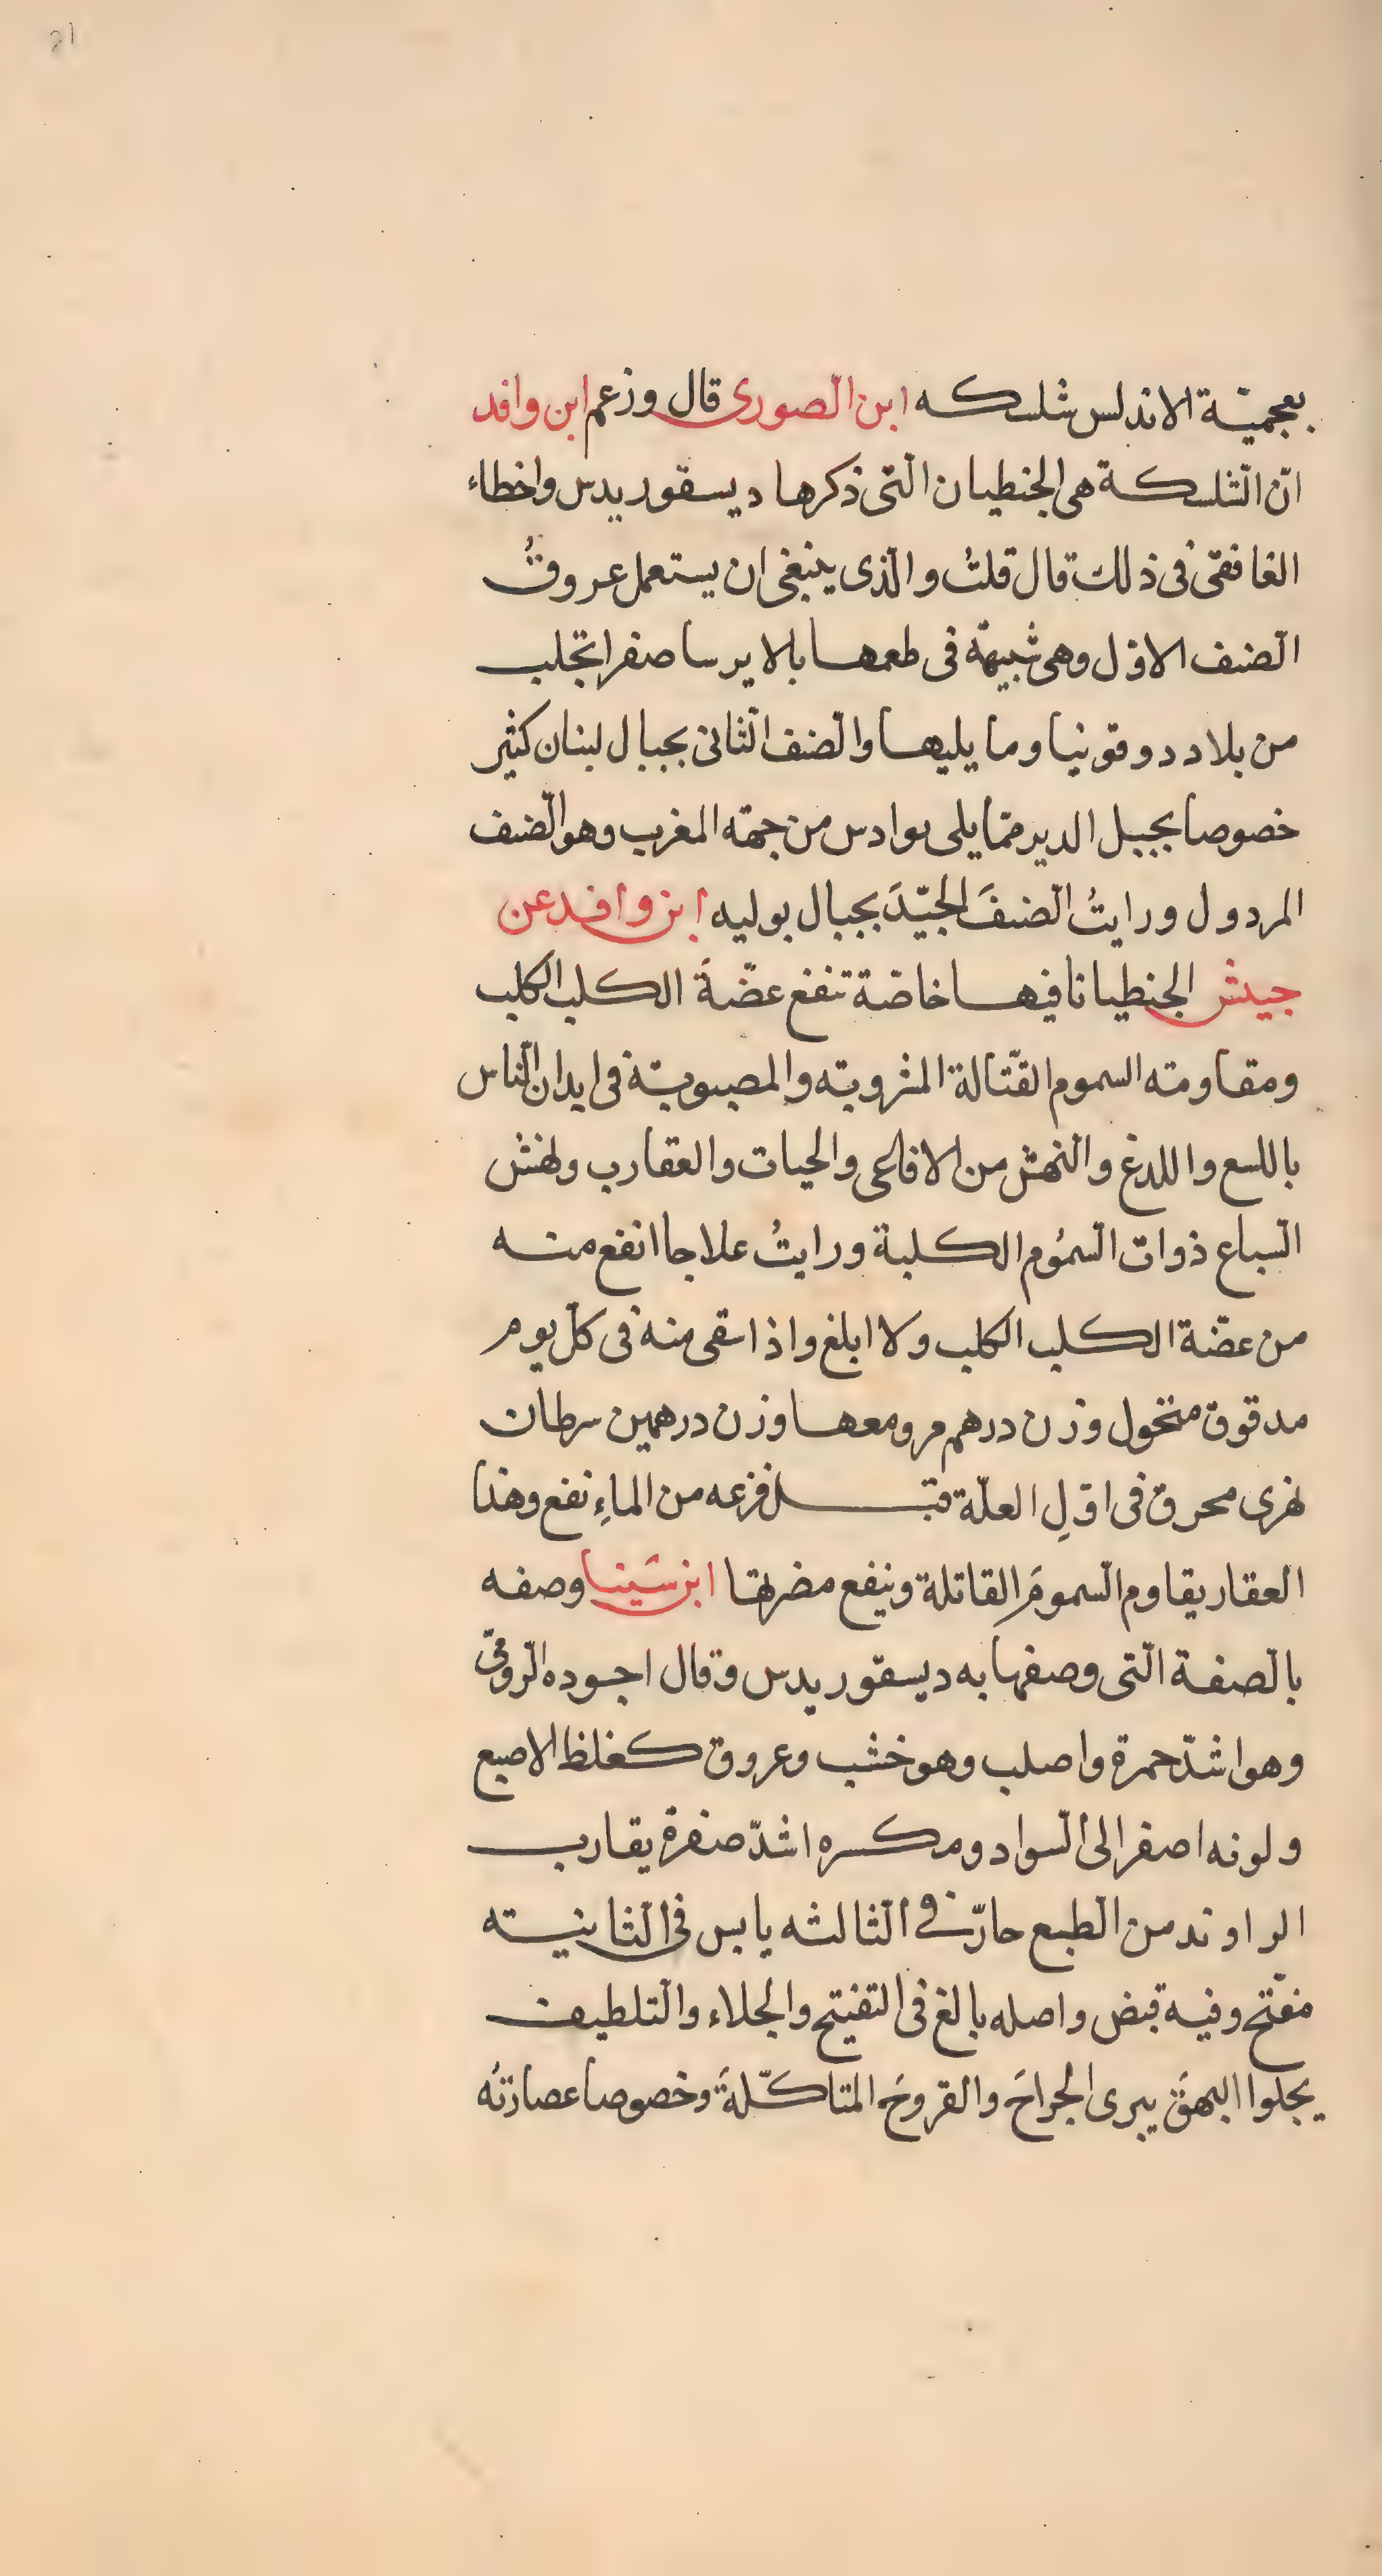 21
بعجميّة الاندلس شلسكه ابن الصورى قال وزعم ابن وافد
انّ الشلسكة هى الجنطيان الّتى ذكرها ديسقوريدس واخطاء
الغافقى فى ذلك قال قلتُ والّذى ينبغى ان يستعمل عروقُ
الصنف الاوّل وهى شبيهة فى طعمها بالايرسا صفرا تجلب
من بلاد دوقونيا وما يليها والصنف الثانى بجبال لبنان كثير
خصوصا بجبل الدير ممّا يلى بوادس من جهة المغرب وهو الصنف
المردول ورايتُ الصنفَ الجيّدَ بجبال بوليه ابن وافد عن
جيش الجنطيانا فيها خاصّة تنفع عضّةَ الكلب الكلب
ومقاومته السموم القتّالة المشروبته والمصبوبة فى ابدان النّاس
باللسع واللدغ والنهش من الافاعى والحيات والعقارب ونهش
السباع ذوات السمُوم الكلبة ورايتُ علاجا انفع منه
من عضّة الكلب الكلب ولا ابلغ واذا سقى منه فى كلّ يوم
مدقوق منخول وزن درهم مر ومعها وزن درهمين سرطان
نهرى محرق فى اوّلِ العلّة قبل فزعه من الماءِ نفع وهذا
العقار يقاوم السمومَ القاتلة وينفع مضرتها ابن سَينا وصفه
بالصفة الّتى وصفها به ديسقوريدس وقال اجوده الرّومّى
وهو اشدّ حمرة واصلب وهو خشب وعروق كغلظ الاصبع
ولونه اصفر الى السواد ومكسره اشدّ صفرة يقارب
الراوند من الطبع حارّ فى الثالثه يابس فى الثانيته
مفتّح وفيه قبض واصله بالغ فى التفتيح والجلاء والتلطيف
يجلوا البهقَ يبرى الجراحَ والقروحَ المتاكّلةَ وخصوصا عصارتُه